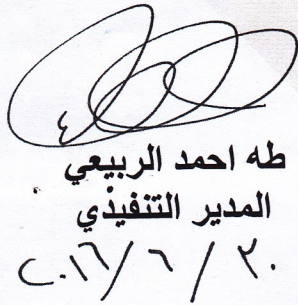 طه احمد الربيعي
المدير التنفيذي
٢٠١٦/٦/٣٠